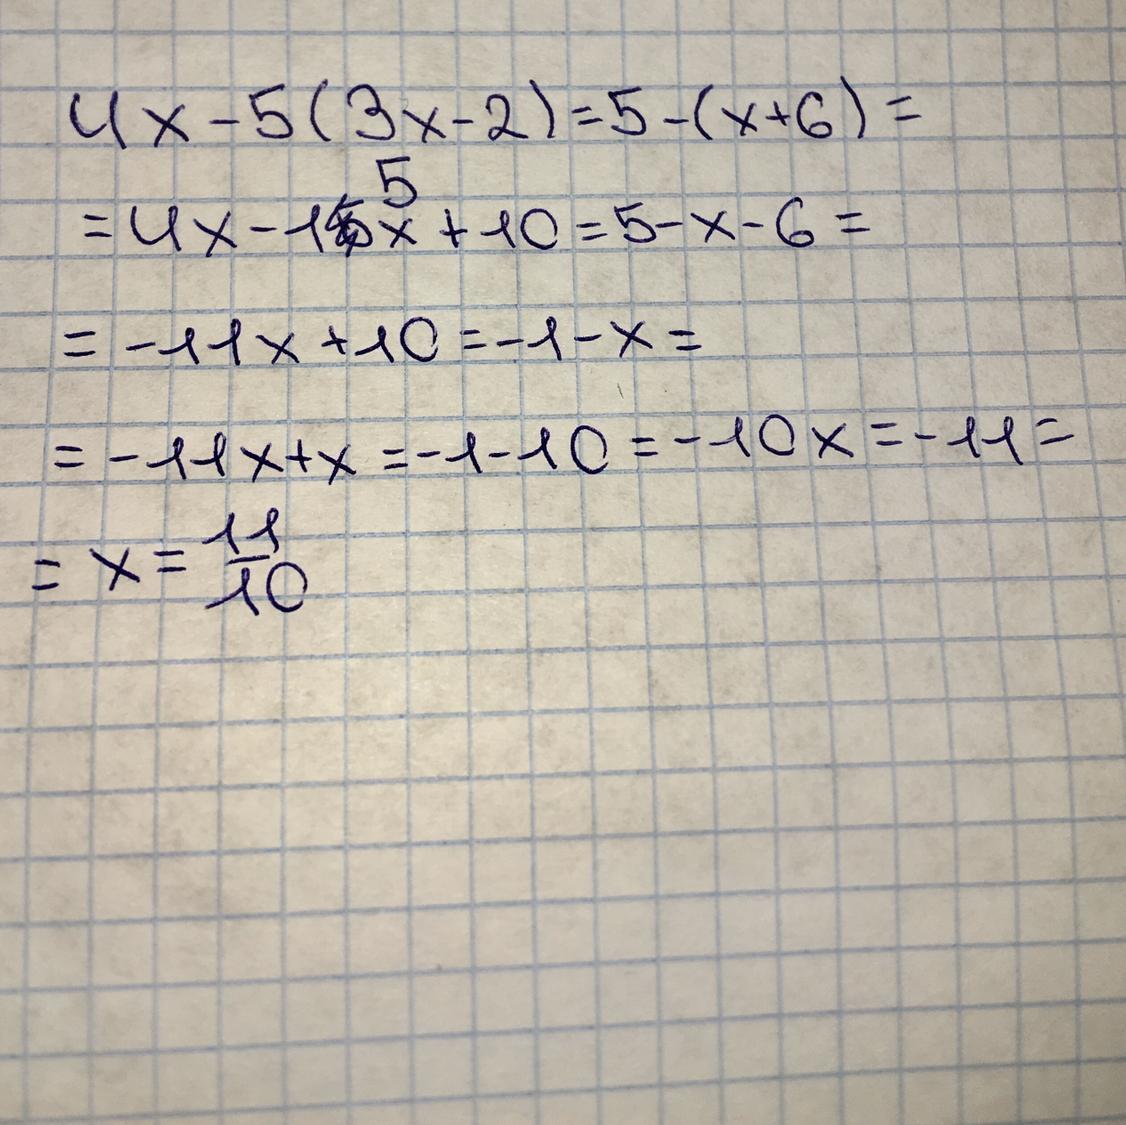 4x-5(3x-2)=5-(x+6)=
=4x-15x+10=5-x-6=
=-11x+10=-1-x=
=-11x+x=-1-10=-10x=-11=
=x=11/10